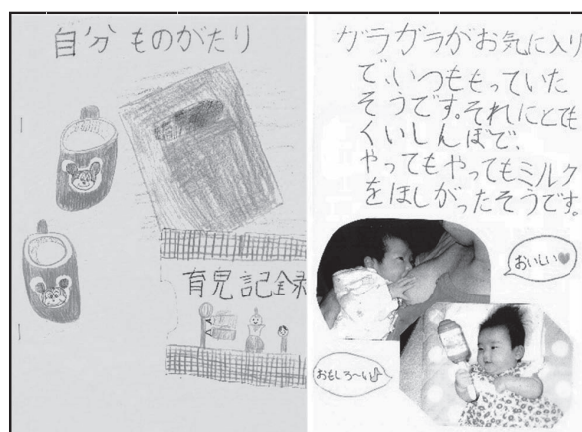 自分ものがたり
育児記録
ガラガラがお気に入り
で、いつももっていた
そうです。それにとても
くいしんぼで、
やってもやってもミルク
をほしがったそうです。
おいしい♥
おもしろ〜い♪